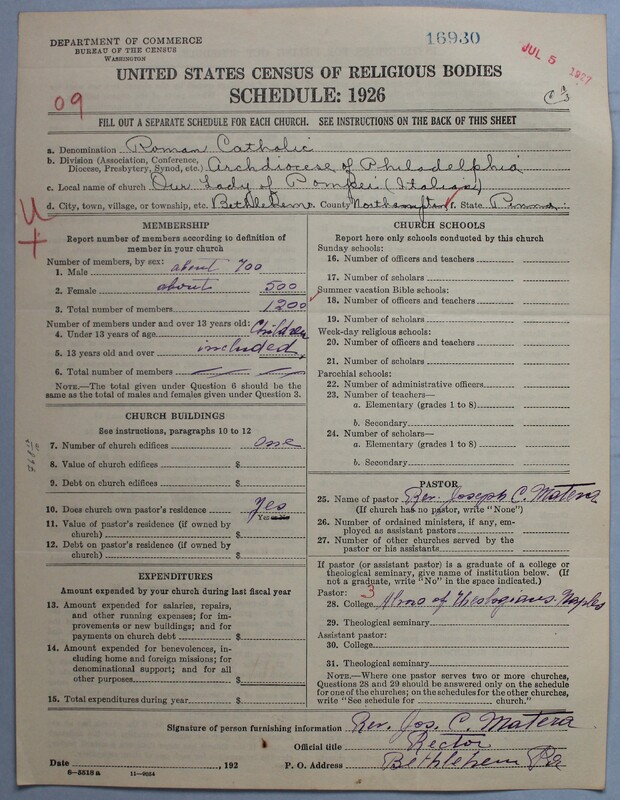 DEPARTMENT OF COMMERCE
BUREAU OF THE CENSUS
WASHINGTON
16930
JUL 5 1927
UNITED STATES CENSUS OF RELIGIOUS BODIES
SCHEDULE: 1926
09
FILL OUT A SEPARATE SCHEDULE FOR EACH CHURCH. SEE INSTRUCTIONS ON THE BACK OF THIS SHEET
a. Denomination Roman Catholic
b. Division (Association, Conference, Diocese, Presbytery, Synod, etc.) Archdiocese of Philadelphia
c. Local name of church Our Lady of Pompei (Italian)
d. City, town, village, or township, etc. Bethlehem e. County Northampton f. State Penna
U
MEMBERSHIP
Report number of members according to definition of
member in your church
Number of members, by sex:
1. Male about 700
2. Female about 500
3. Total number of members 1200
Number of members under and over 13 years old:
4. Under 13 years of age Children
5. 13 years old and over included
6. Total number of members
NOTE.—The total given under Question 6 should be the
same as the total of males and females given under Question 3.
CHURCH BUILDINGS
See instructions, paragraphs 10 to 12
7. Number of church edifices one
8. Value of church edifices $
9. Debt on church edifices $
10. Does church own pastor's residence Yes
Yes or No
11. Value of pastor's residence (if owned by
church) $
12. Debt on pastor's residence (if owned by
church) $
EXPENDITURES
Amount expended by your church during last fiscal year
13. Amount expended for salaries, repairs,
and other running expenses; for im-
provements or new buildings; and for
payments on church debt $
14. Amount expended for benevolences, in-
cluding home and foreign missions; for
denominational support; and for all
other purposes $
15. Total expenditures during year $
CHURCH SCHOOLS
Report here only schools conducted by this church
Sunday schools:
16. Number of officers and teachers
17. Number of scholars
Summer vacation Bible schools:
18. Number of officers and teachers
19. Number of scholars
Week-day religious schools:
20. Number of officers and teachers
21. Number of scholars
Parochial schools:
22. Number of administrative officers
23. Number of teachers—
a. Elementary (grades 1 to 8)
b. Secondary
24. Number of scholars—
a. Elementary (grades 1 to 8)
b. Secondary
PASTOR
25. Name of pastor Rev. Joseph C. Matera
(If church has no pastor, write "None")
26. Number of ordained ministers, if any, em-
ployed as assistant pastors
27. Number of other churches served by the
pastor or his assistants
If pastor (or assistant pastor) is a graduate of a college or
theological seminary, give name of institution below. (If
not a graduate, write "No" in the space indicated.)
Pastor: 3
28. College Almo of Theologians. Naples
29. Theological seminary
Assistant pastor:
30. College
31. Theological seminary
NOTE.—Where one pastor serves two or more churches,
Questions 28 and 29 should be answered only on the schedule
for one of the churches; on the schedules for the other churches,
write "See schedule for church."
Signature of person furnishing information Rev. Jos. C. Matera
Official title Rector
Date , 192 P. O. Address Bethlehem Pa
8—5518 a 11—9054